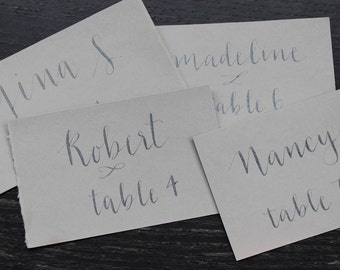 Gina S
madeline
table 6
Robert
table 4
Nancy
table